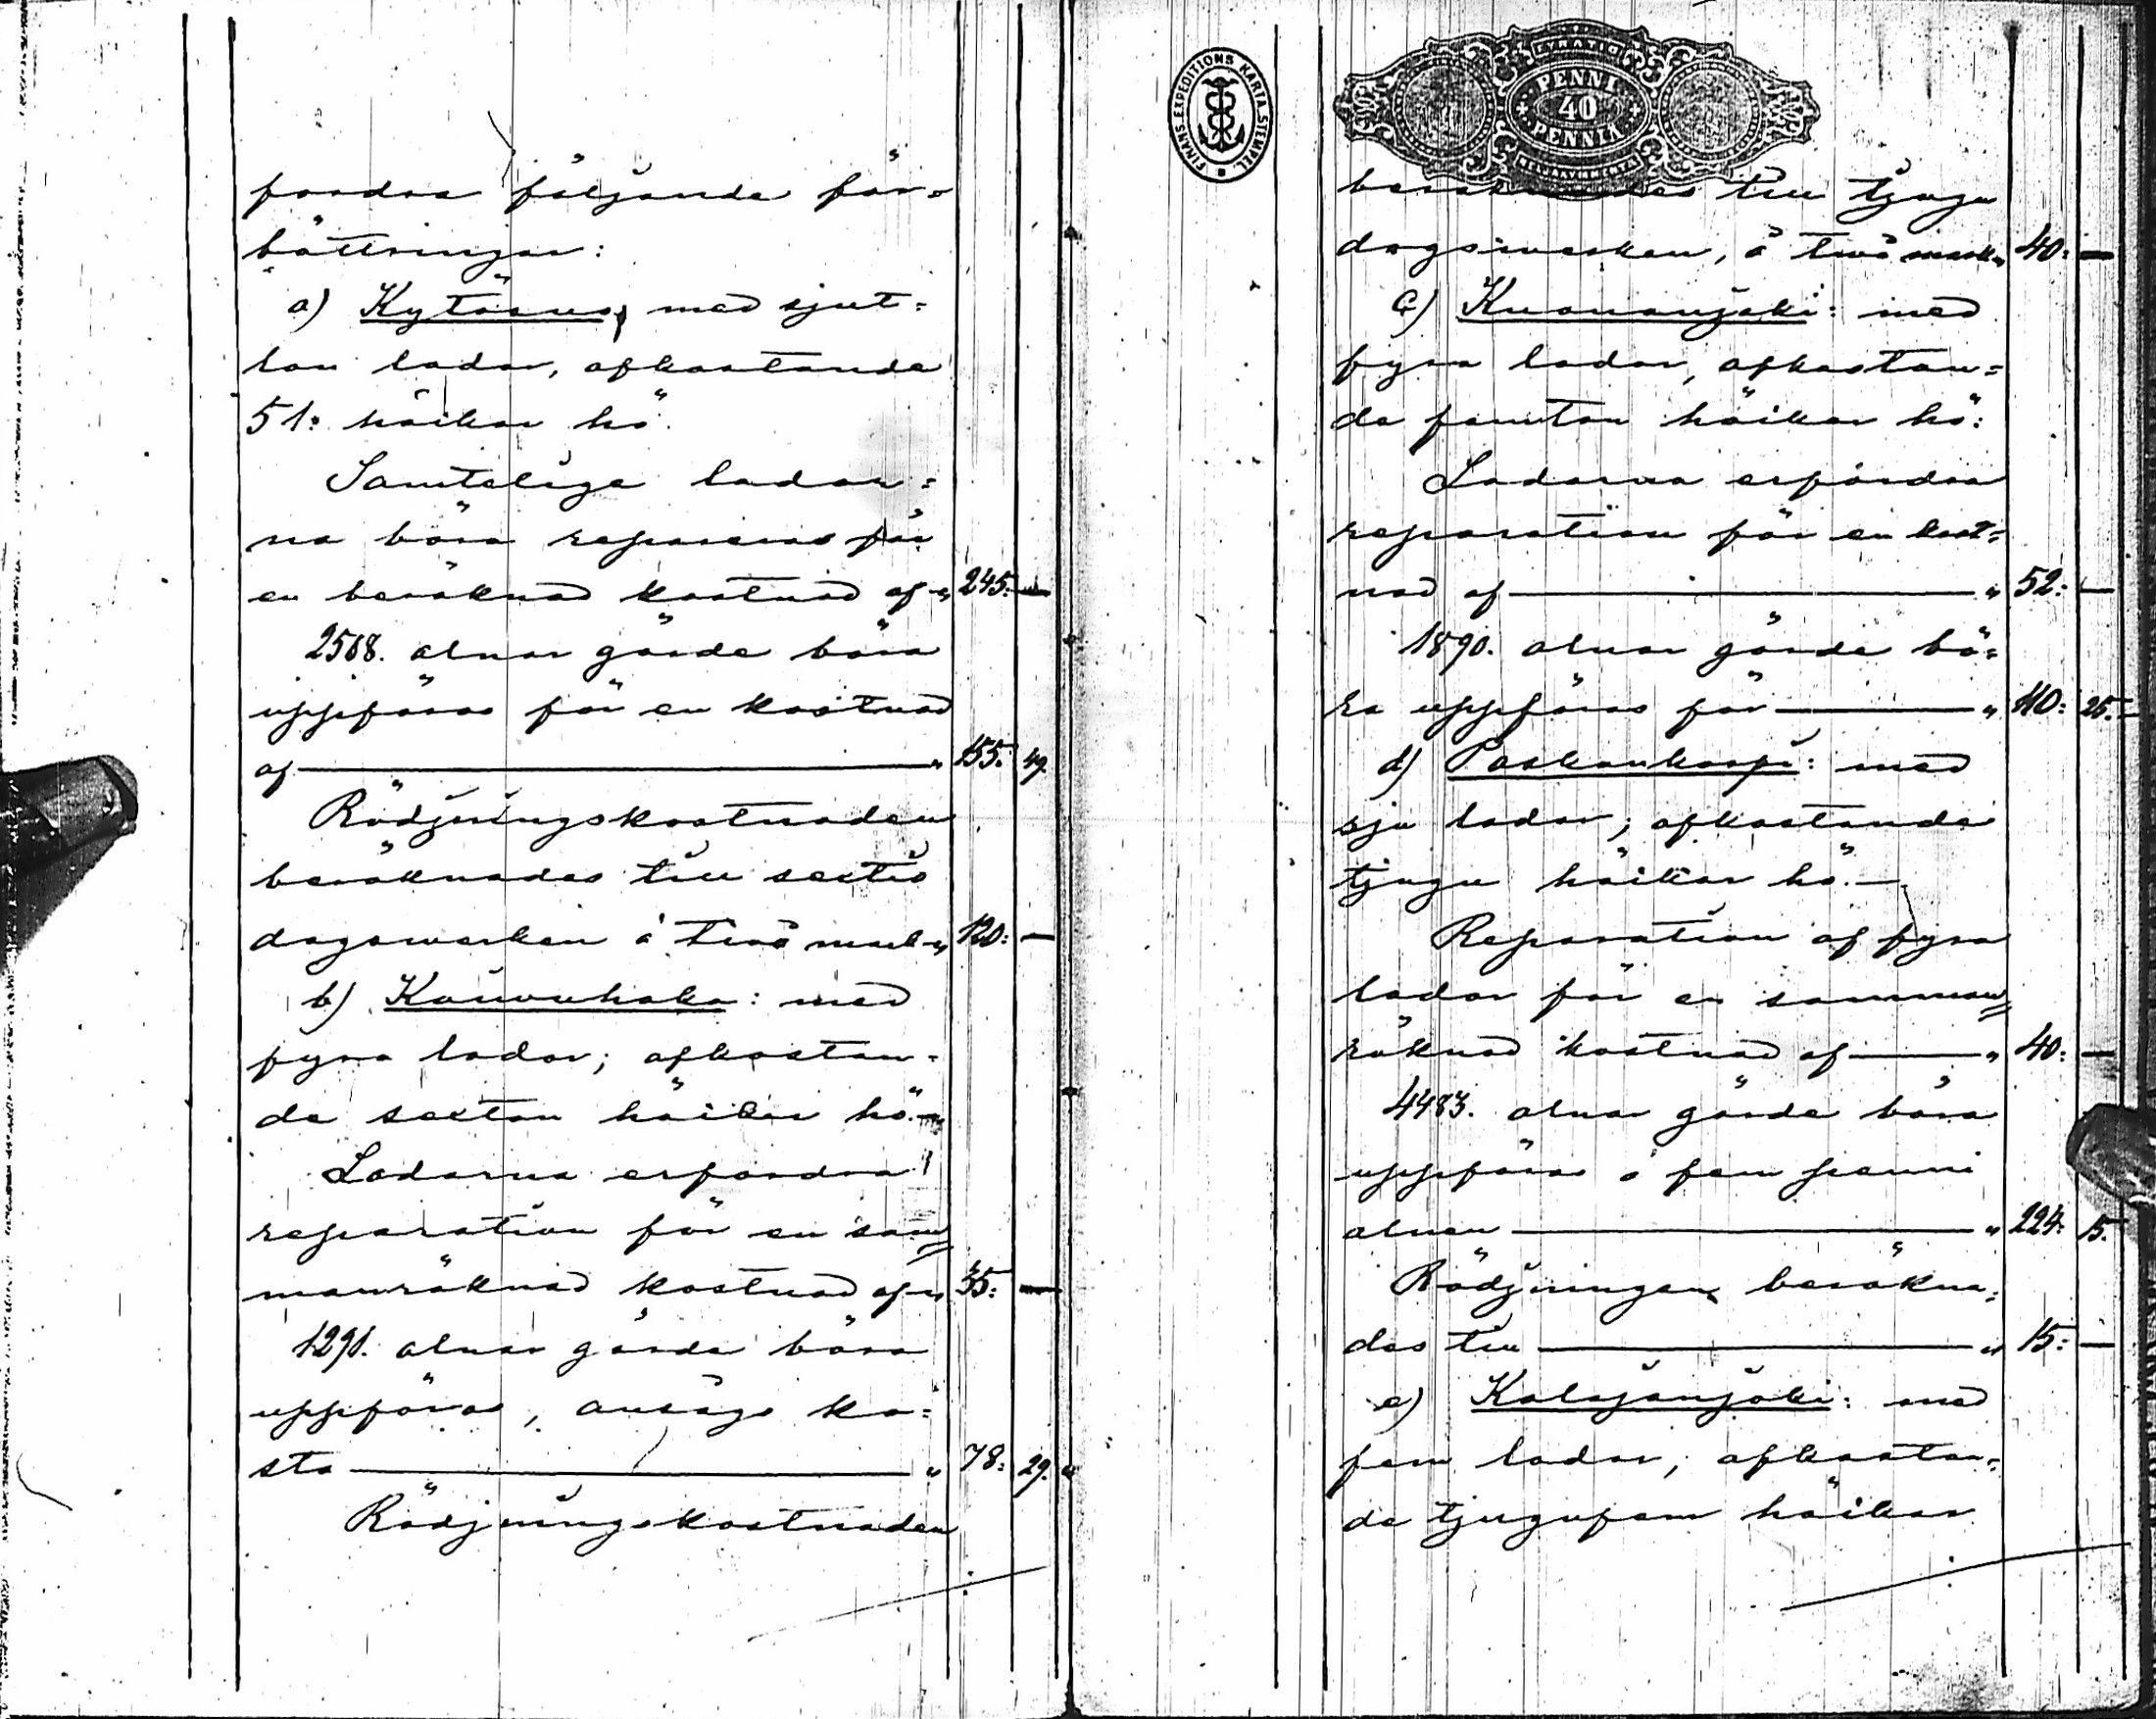 fordra följande för=
bättringar:
a) Kytösuo, med sjut=
ton lador, afkastande
51: häckar hö.
Samtelige lador=
na böra repareras för
en beräknad kostnad af " 245: —
2568. alnar gärde böra
uppföras för en kostnad
af — " 155: 49.
Rödjningskostnaden
beräknades till sextio
dagsverken á två mark " 120: —
b) Kouvuhaka: med
fyra lador; afkastan=
de sexton häckar hö.—
Ladorna erfordra
reparation för en sam=
manräknad kostnad af " 55: —
1291. alnar gärde böra
uppföras, ansågs ko=
sta — " 78: 29.
Rödjningskostnaden
FINANS EXPEDITIONS KARTA STEMPEL
PENNI
40
PENNIÄ
beräknades till tjugu
dagsverken, á två mark " 40: —
c) Kuonanjoki: med
fyra lador, afkastan=
de femton häckar hö:
Ladorna erfordra
reparation för en kost=
nad af — " 52: —
1890. alnar gärde bö=
ra uppföras för — " 110: 25.
d) Paskankorpi: med
sju lador; afkastande
tjugu häckar hö.—
Reparation af fyra
lador för en samman=
räknad kostnad af — " 40: —
4483. alnar gärde böra
uppföras á fem penni
alnen — " 224: 15.
Rödjningen beräkna=
des till — " 15: —
e) Kalajanjoki: med
fem lador, afkastan=
de tjugufem häckar